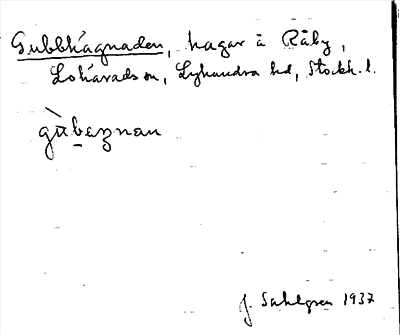 Gubbhagnaden, hagar å Råby,
Lohärads sn, Lyhundra hd, Stockh. l.
gùbaznan
J. Sahlgren 1937